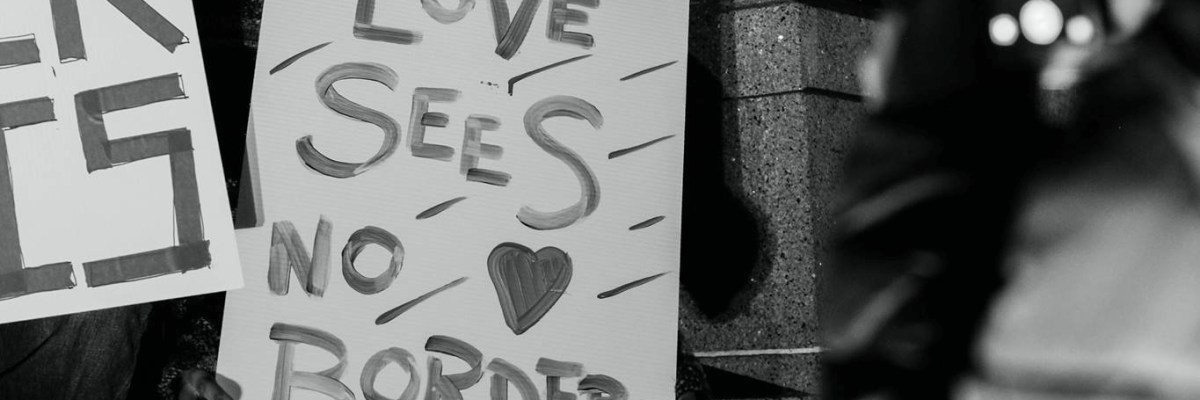 LOVE
SEES
NO
BORDER
IS